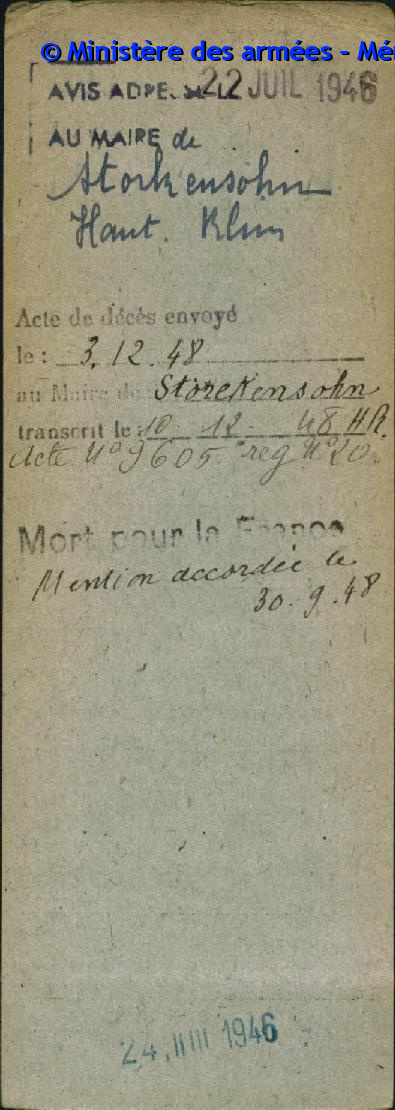 © Ministère des armées - Mé
AVIS ADRESSÉ LE 22 JUIL 1946
AU MAIRE de
Storkensohn
Haut. Rhin
Acte de décès envoyé
le : 3. 12. 48
au Maire de Storckensohn
transcrit le : 10 12 48 HR.
Acte N° 9605 reg N° 20.
Mort pour la France
Mention accordée le
30. 9. 48
24 JUIL 1946